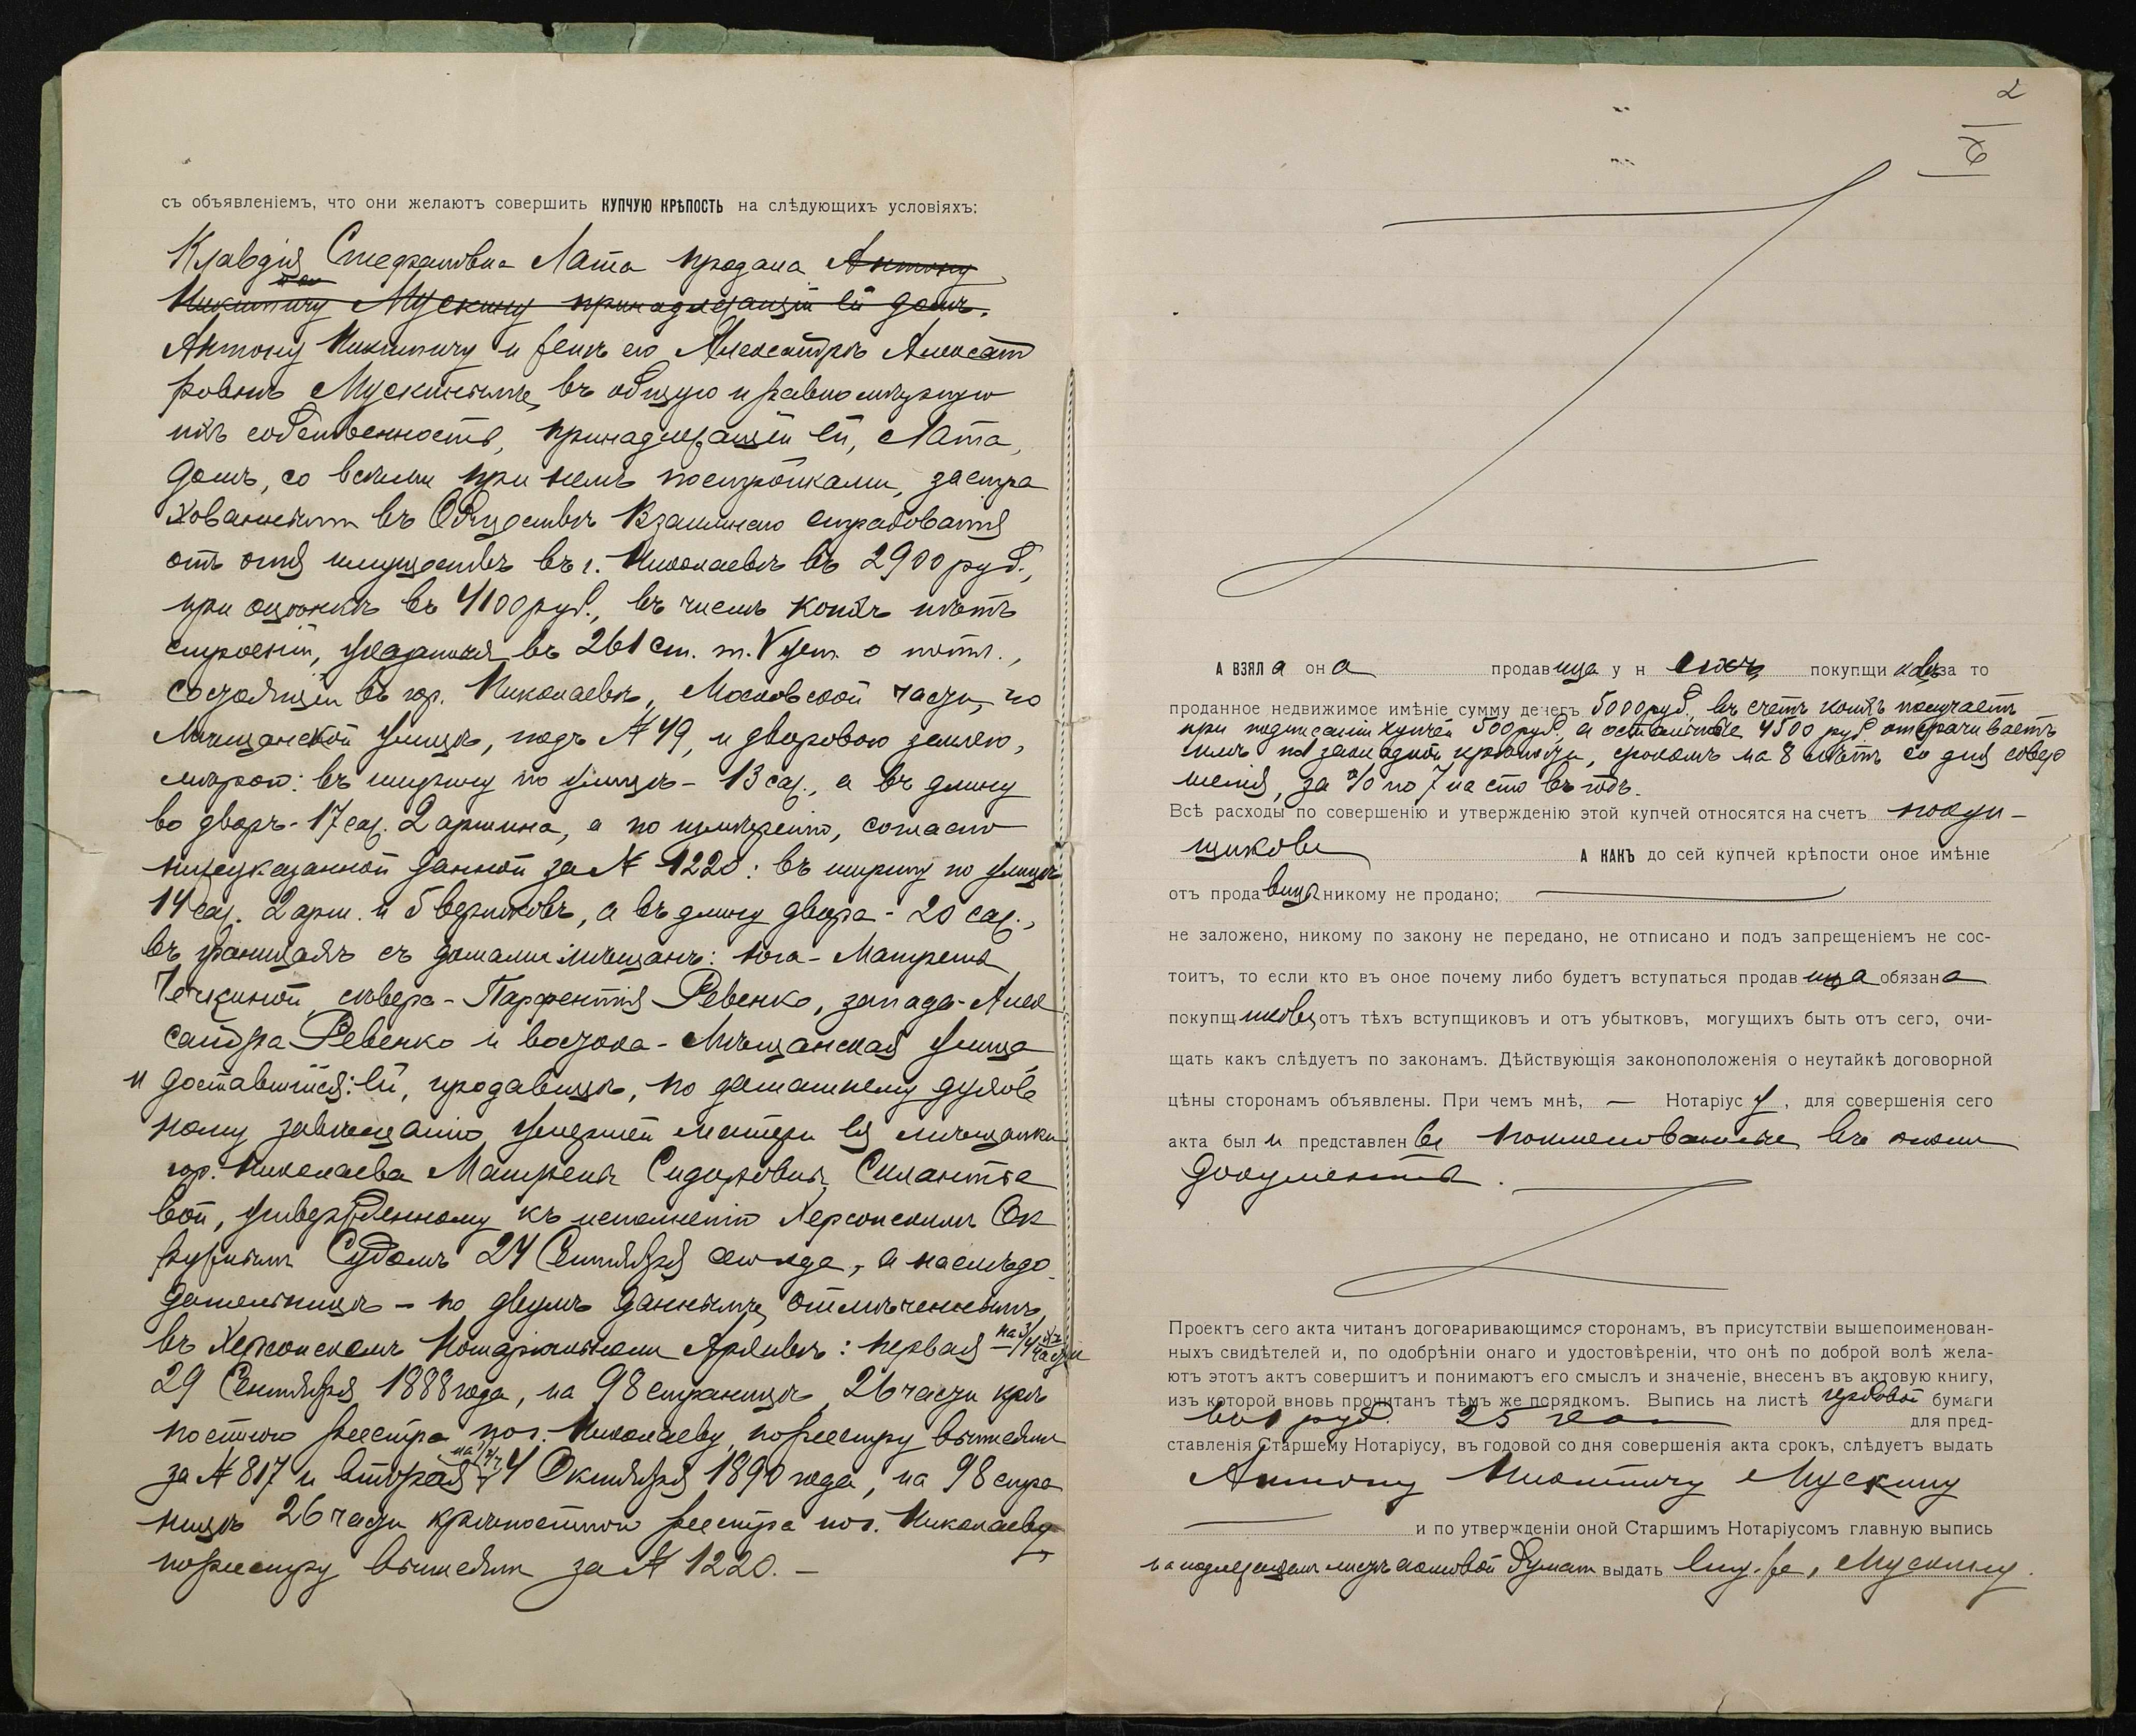 съ объявленіемъ, что они желаютъ совершить КУПЧУЮ КРѢПОСТЬ на слѣдующихъ условіяхъ:
Клавдія Стефановна Лата продала Антону
Никитичу Мускину принадлежащій ей домъ.
Антону Никитичу и женѣ его Александрѣ Александ
ровнѣ Мускинымъ, въ общую и равномѣрную
ихъ собственность, принадлежащій ей, Лата,
домъ, со всѣми при немъ постройками, застра
хованными въ Обществѣ Взаимнаго страхованія
отъ огня имуществъ въ г. Николаевѣ въ 2900 руб.,
при оцѣнкѣ въ 4100 руб., въ числѣ коихъ нѣтъ
строеній, указанныхъ въ 261 ст. т. V уст. о пошл.,
состоящій въ гор. Николаевѣ, Московской части, по
Мѣщанской улицѣ, подъ № 49, и дворовою землею,
мѣрою: въ ширину по улицѣ - 13 саж., а въ длину
во дворъ - 17 саж. 2 аршина, а по измѣренію, согласно
нижеуказанной данной за № 1220: въ ширину по улицѣ
14 саж. 2 арш. и 5 вершковъ, а въ длину двора - 20 саж.,
въ границахъ съ домами мѣщанъ: юга - Матрены
сѣвера - Парфентія Ревенко, запада - Алек
сандра Ревенко и востока - Мѣщанская улица
и доставшійся: ей, продавицѣ, по домашнему духов
ному завѣщанію умершей матери ея мѣщанки
гор. Николаева Матрены Сидоровны Силантье
вой, утвержденному къ исполненію Херсонскимъ Ок
ружнымъ Судомъ 24 Сентября сего года, а наслѣдо
дательницѣ - по двумъ даннымъ, отмѣченнымъ
въ Херсонскомъ Нотаріальномъ Архивѣ: первая - на 3/4 части
29 Сентября 1888 года, на 98 страницѣ 26 части крѣ
постного реестра по г. Николаеву, по реестру
за № 817 и вторая на 1/4 ч. 4 Октября 1890 года, на 98 стра
ницѣ 26 части крѣпостного реестра по г. Николаеву
по реестру за № 1220. -
2
А ВЗЯЛ а он а продавица у н ихъ покупщи ковъ за то
проданное недвижимое имѣніе сумму денегъ 5000 руб., въ счетъ коихъ получаетъ
при подписаніи купчей 500 руб., а остальные 4500 руб отсрочиваетъ
имъ по закладной крѣпости, срокомъ на 8 лѣтъ со дня совер
шенія, за % по 7 на сто въ годъ.
Всѣ расходы по совершенію и утвержденію этой купчей относятся на счетъ покуп-
щиковъ А КАКЪ до сей купчей крѣпости оное имѣніе
отъ прода вицы никому не продано;
не заложено, никому по закону не передано, не отписано и подъ запрещеніемъ не сос-
тоитъ, то если кто въ оное почему либо будетъ вступаться продав ица обязан а
покупщ иковъ отъ тѣхъ вступщиковъ и отъ убытковъ, могущихъ быть отъ сего, очи-
щать какъ слѣдуетъ по законамъ. Дѣйствующія законоположенія о неутайкѣ договорной
цѣны сторонамъ объявлены. При чемъ мнѣ, — Нотаріус у, для совершенія сего
акта был и представлен ы поименованные въ описи
документы.
Проектъ сего акта читанъ договаривающимся сторонамъ, въ присутствіи вышепоименован-
ныхъ свидѣтелей и, по одобрѣніи онаго и удостовѣреніи, что онѣ по доброй волѣ жела-
ютъ этотъ актъ совершить и понимаютъ его смыслъ и значеніе, внесенъ въ актовую книгу,
изъ которой вновь прочитанъ тѣмъ же порядкомъ. Выпись на листѣ гербовой бумаги
въ 1 руб. 25 коп для пред-
ставленія Старшему Нотаріусу, въ годовой со дня совершенія акта срокъ, слѣдуетъ выдать
Антону Никитичу Мускину
и по утвержденіи оной Старшимъ Нотаріусомъ главную выпись
на надлежащемъ листѣ актовой бумаги выдать ему же, Мускину.